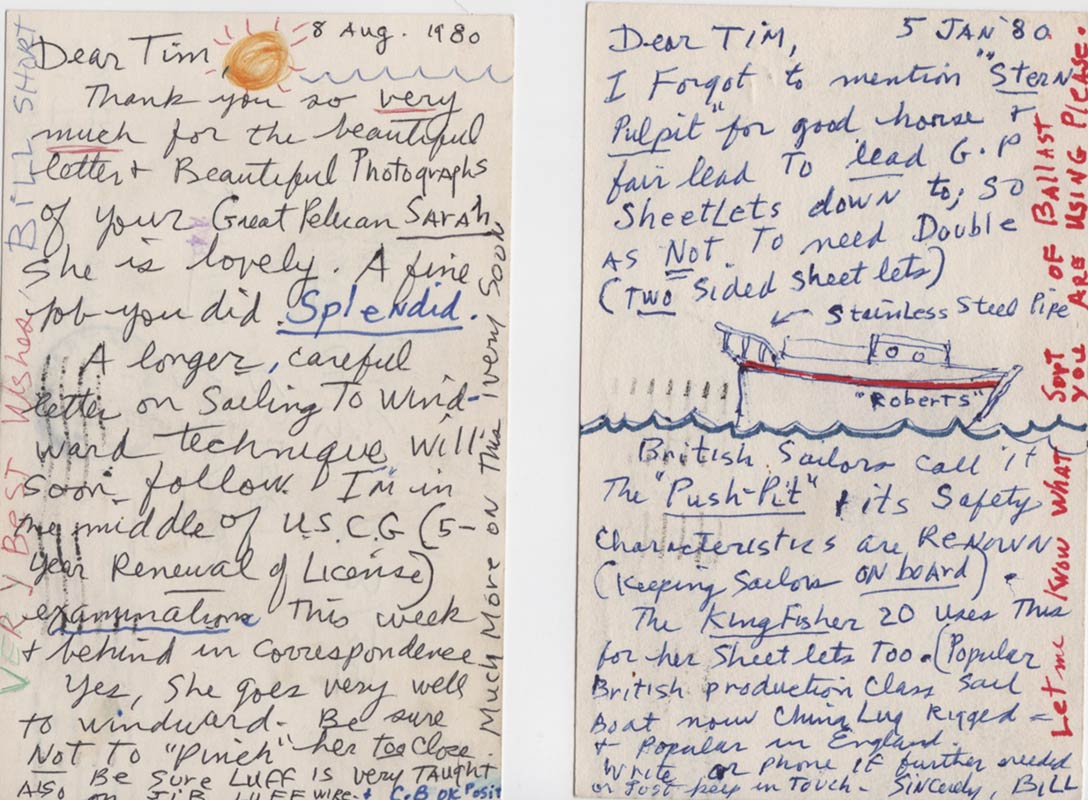 8 Aug. 1980
Dear Tim,
Thank you so very
much for the beautiful
letter + Beautiful Photographs
of your Great Pelican Sarah.
She is lovely. A fine
job you did. Splendid.
A longer, careful
letter on Sailing To Wind-
ward technique will
soon follow. I'm in
the middle of U.S.C.G (5-
year Renewal of License)
examination This week
+ behind in correspondence
Yes, She goes very well
to windward - Be sure
Not To "Pinch" her too close
Also Be Sure Luff is very Taught
on Jib Luff wire. + C.B OK Posit
Much More on This very Soon
Very Best Wishes, Bill Short
5 JAN '80
Dear Tim,
I Forgot to mention "Stern
Pulpit" for good horse +
fair lead To lead G.P
Sheetlets down to; So
as Not To need Double
(Two Sided Sheetlets)
Stainless Steel Pipe
"Roberts"
British Sailors call it
The "Push-Pit" its Safety
Characteristics are Renown
(Keeping Sailors on board).
The Kingfisher 20 uses This
for her Sheetlets Too. (Popular
British production Class Sail
Boat now China Lug Rigged -
+ Popular in England.
Write or phone if further needed
or Just keep in Touch - Sincerely, Bill
Let me know what sort of Ballast
you are using please.